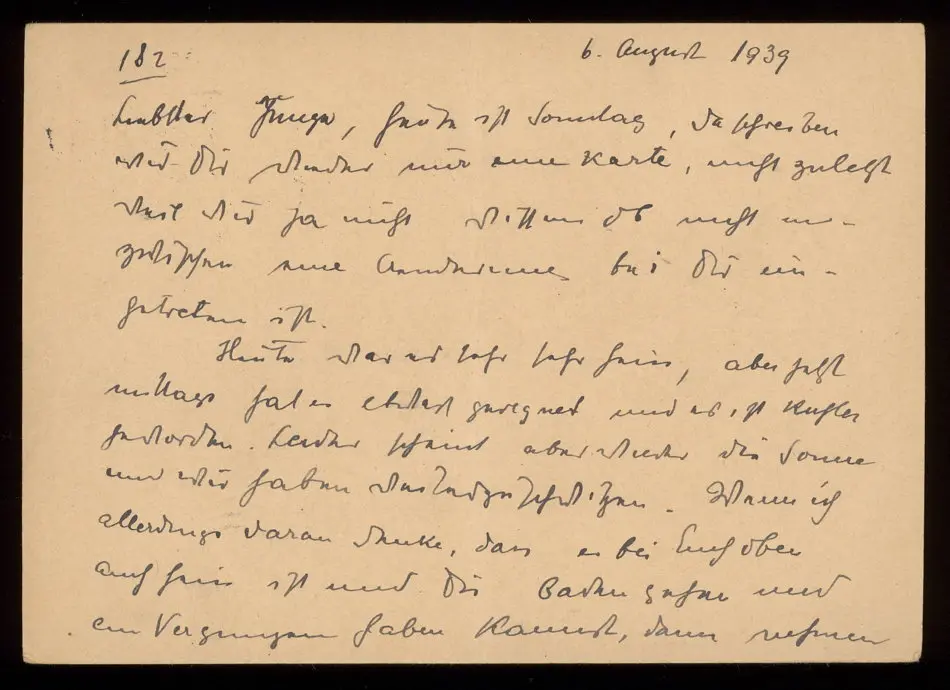 182
6. August 1939
Liebster Junge, heute ist Sonntag, da schreiben
wir Dir wieder nur eine Karte, nicht zuletzt
weil wir ja nicht wissen ob nicht in-
zwischen eine Aenderung bei Dir ein-
getreten ist.
Heute war es sehr sehr heiss, aber jetzt
mittags hat es etwas geregnet und es ist kühler
geworden. Leider scheint aber wieder die Sonne
und wir haben weiter zu schwitzen. Wenn ich
allerdings daran denke, dass es bei Euch oben
auch heiss ist und Du Baden gehen und
ein Vergnügen haben kannst, dann nehmen